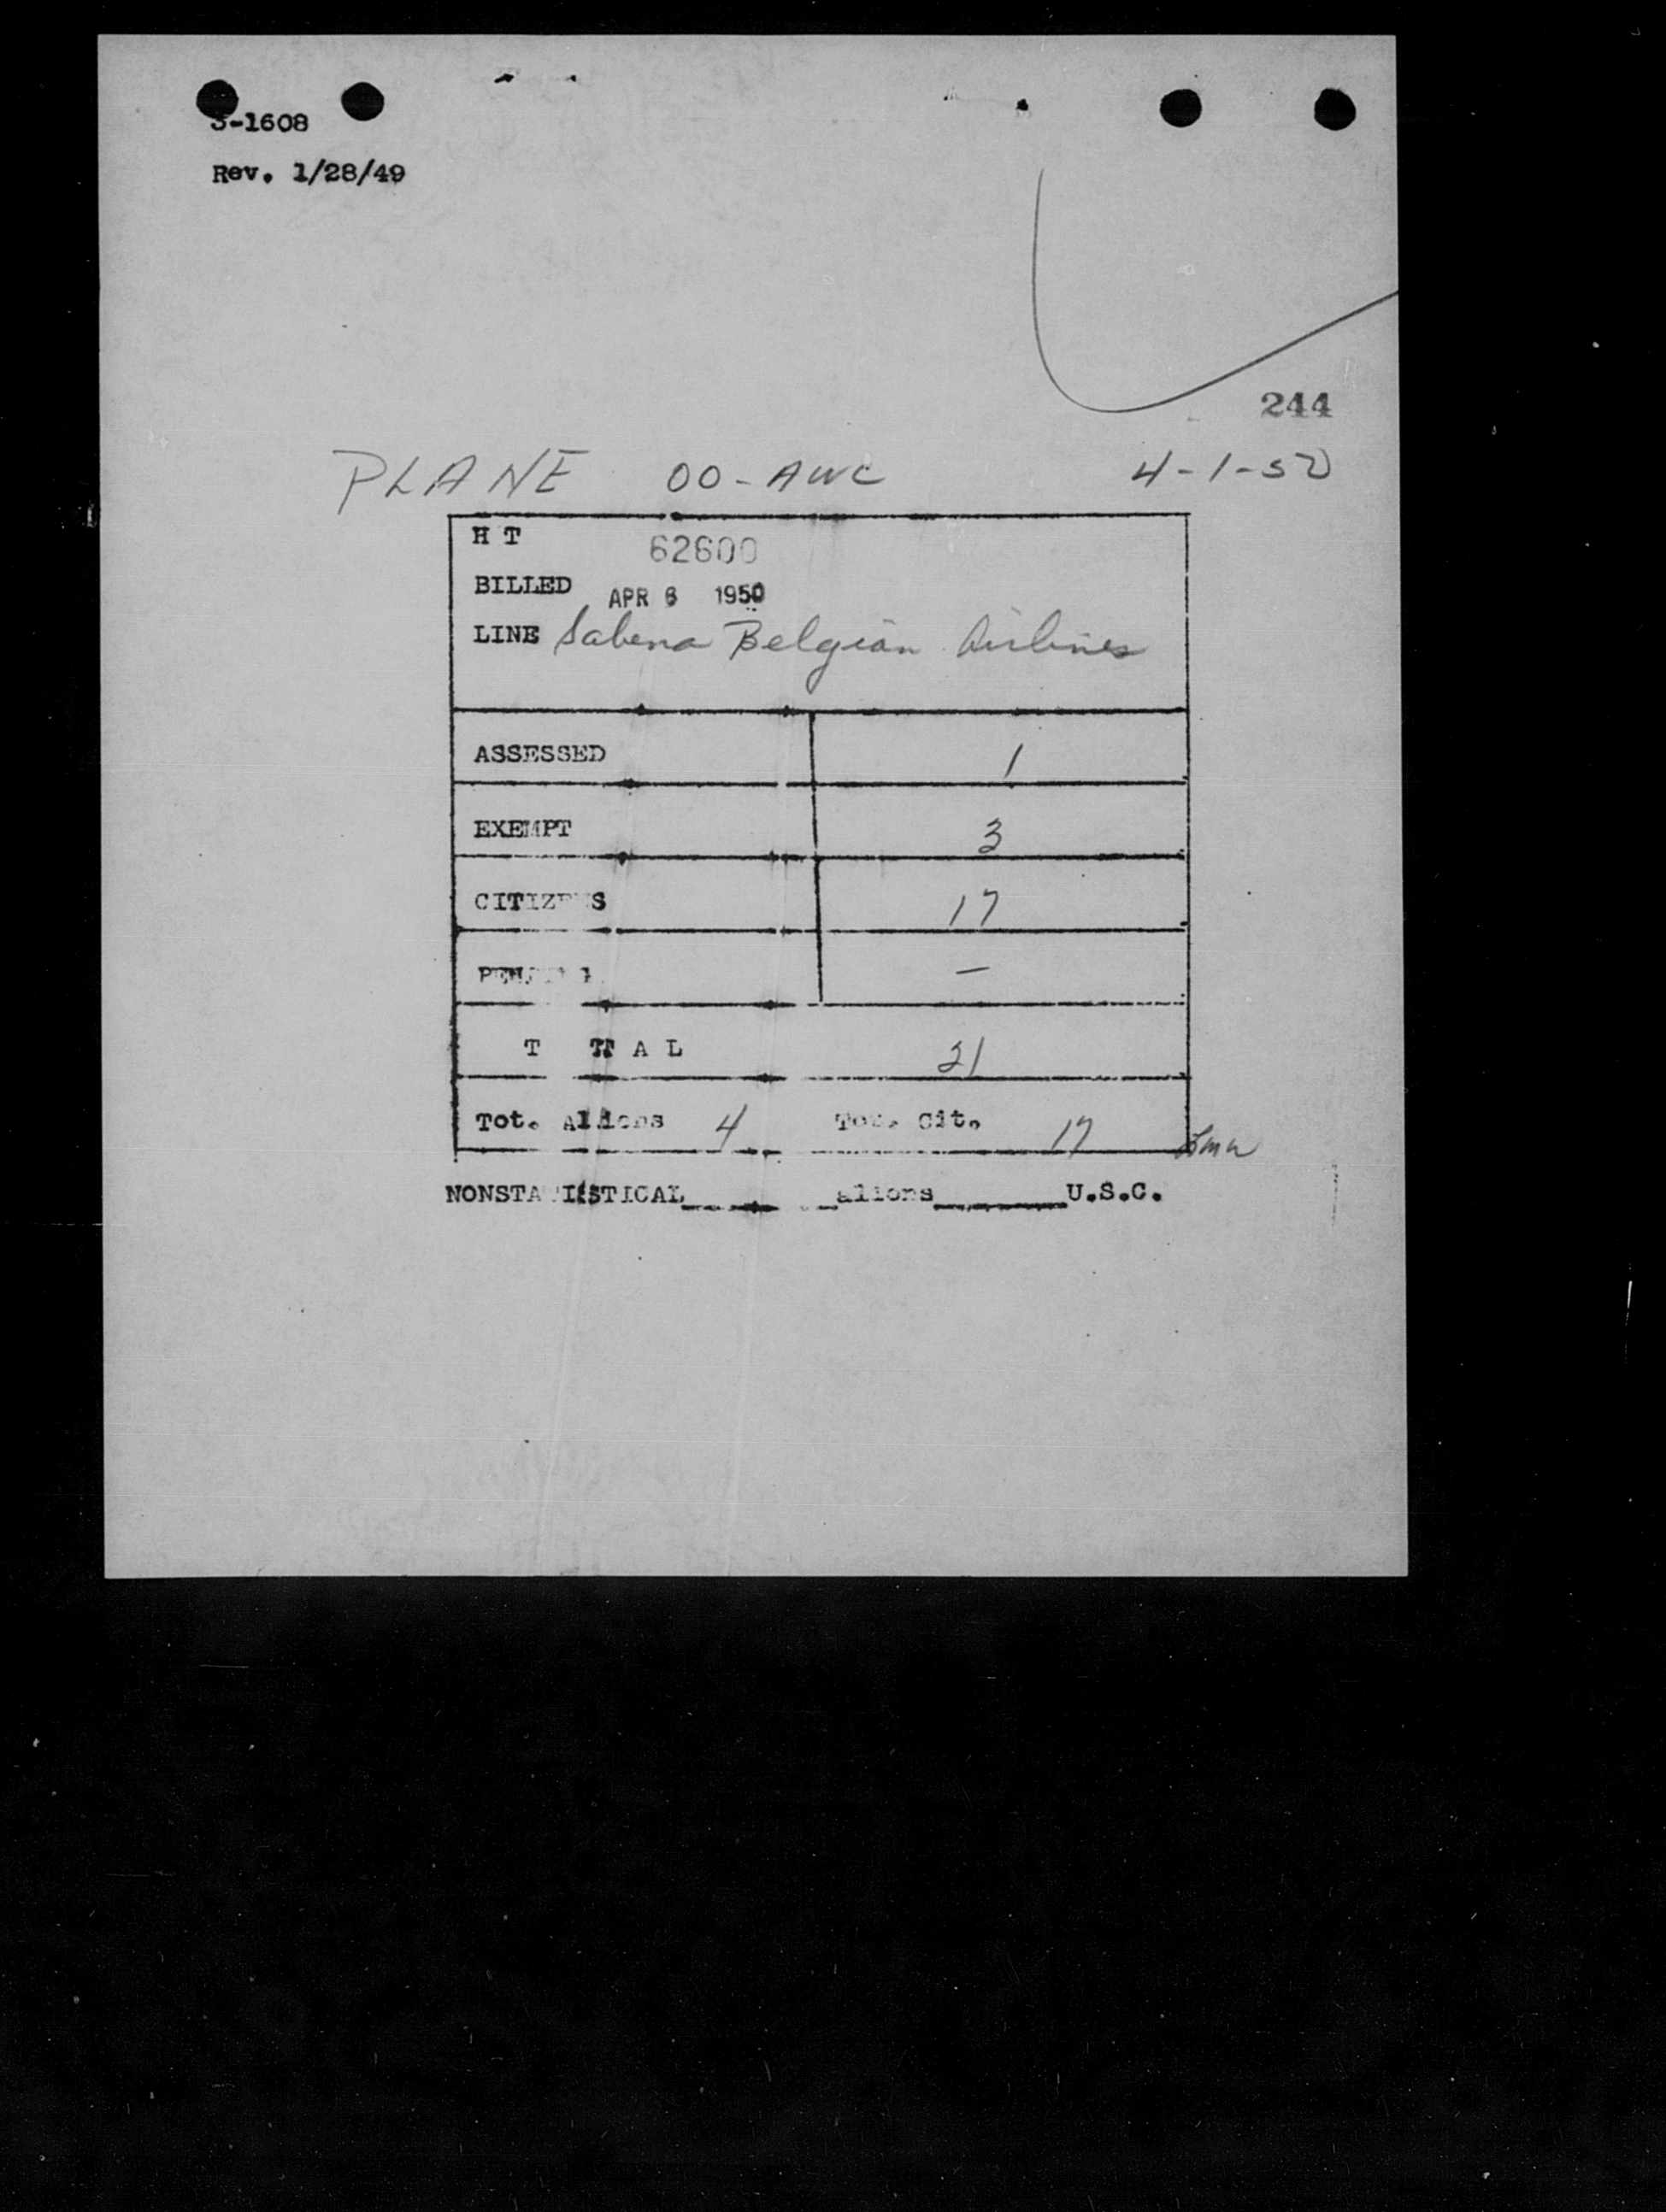 3-1608
Rev. 1/28/49
244
PLANE OO-AWC 4-1-50
H T 62600
BILLED APR 6 1950
LINE Sabena Belgian Airlines
ASSESSED 1
EXEMPT 3
CITIZENS 17
PENDING —
T O T A L 21
Tot. Aliens 4 Tot. Cit. 17
NONSTATISTICAL____aliens____U.S.C.